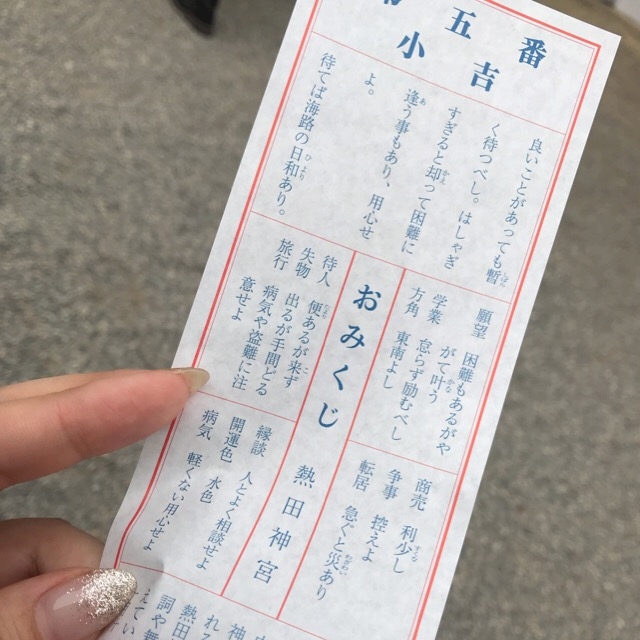 五番
小吉
良いことがあっても暫
く待つべし。はしゃぎ
すぎると却って困難に
逢う事もあり、用心せ
よ。
待てば海路の日和あり。
願望 困難もあるがや
がて叶う
学業 怠らず励むべし
方角 東南よし
おみくじ
待人 便あるが来ず
失物 出るが手間どる
旅行 病気や盗難に注
意せよ
商売 利少し
争事 控えよ
転居 急ぐと災あり
熱田神宮
縁談 人とよく相談せよ
開運色 水色
病気 軽くない用心せよ